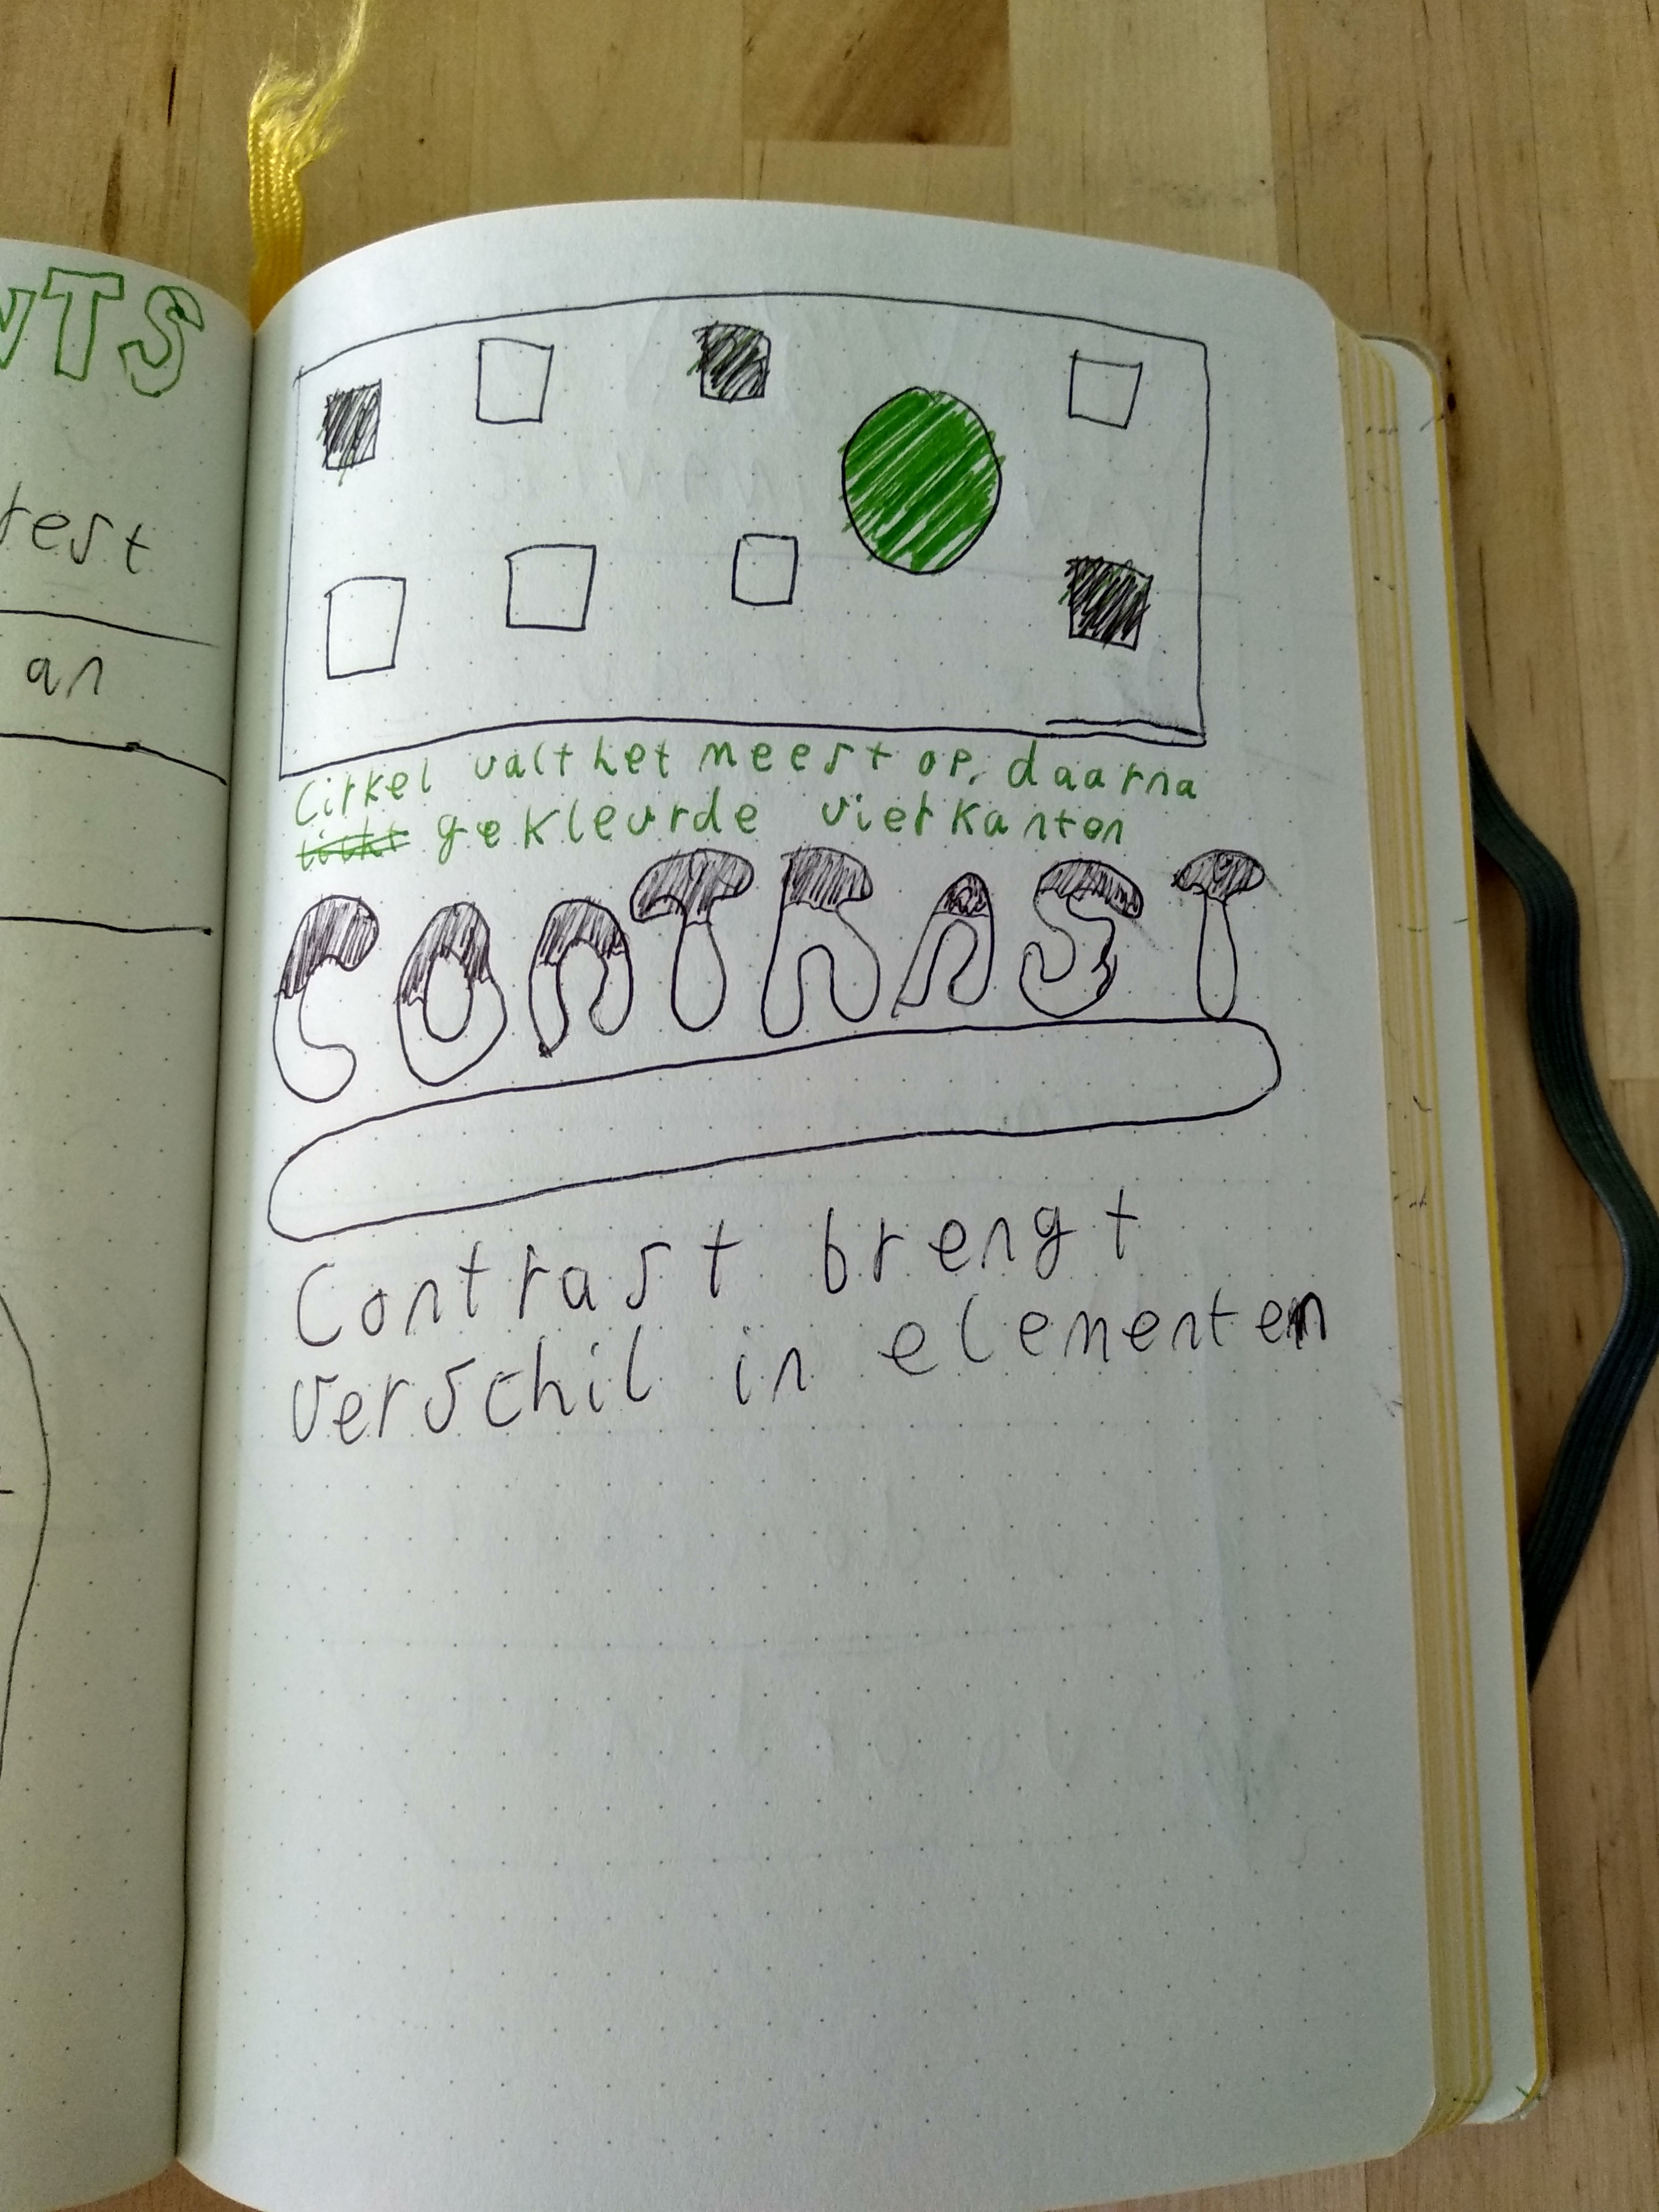 NTS
rest
an
Cirkel valt het meest op, daarna
gekleurde vierkanten
CONTRAST
Contrast brengt
verschil in elementen